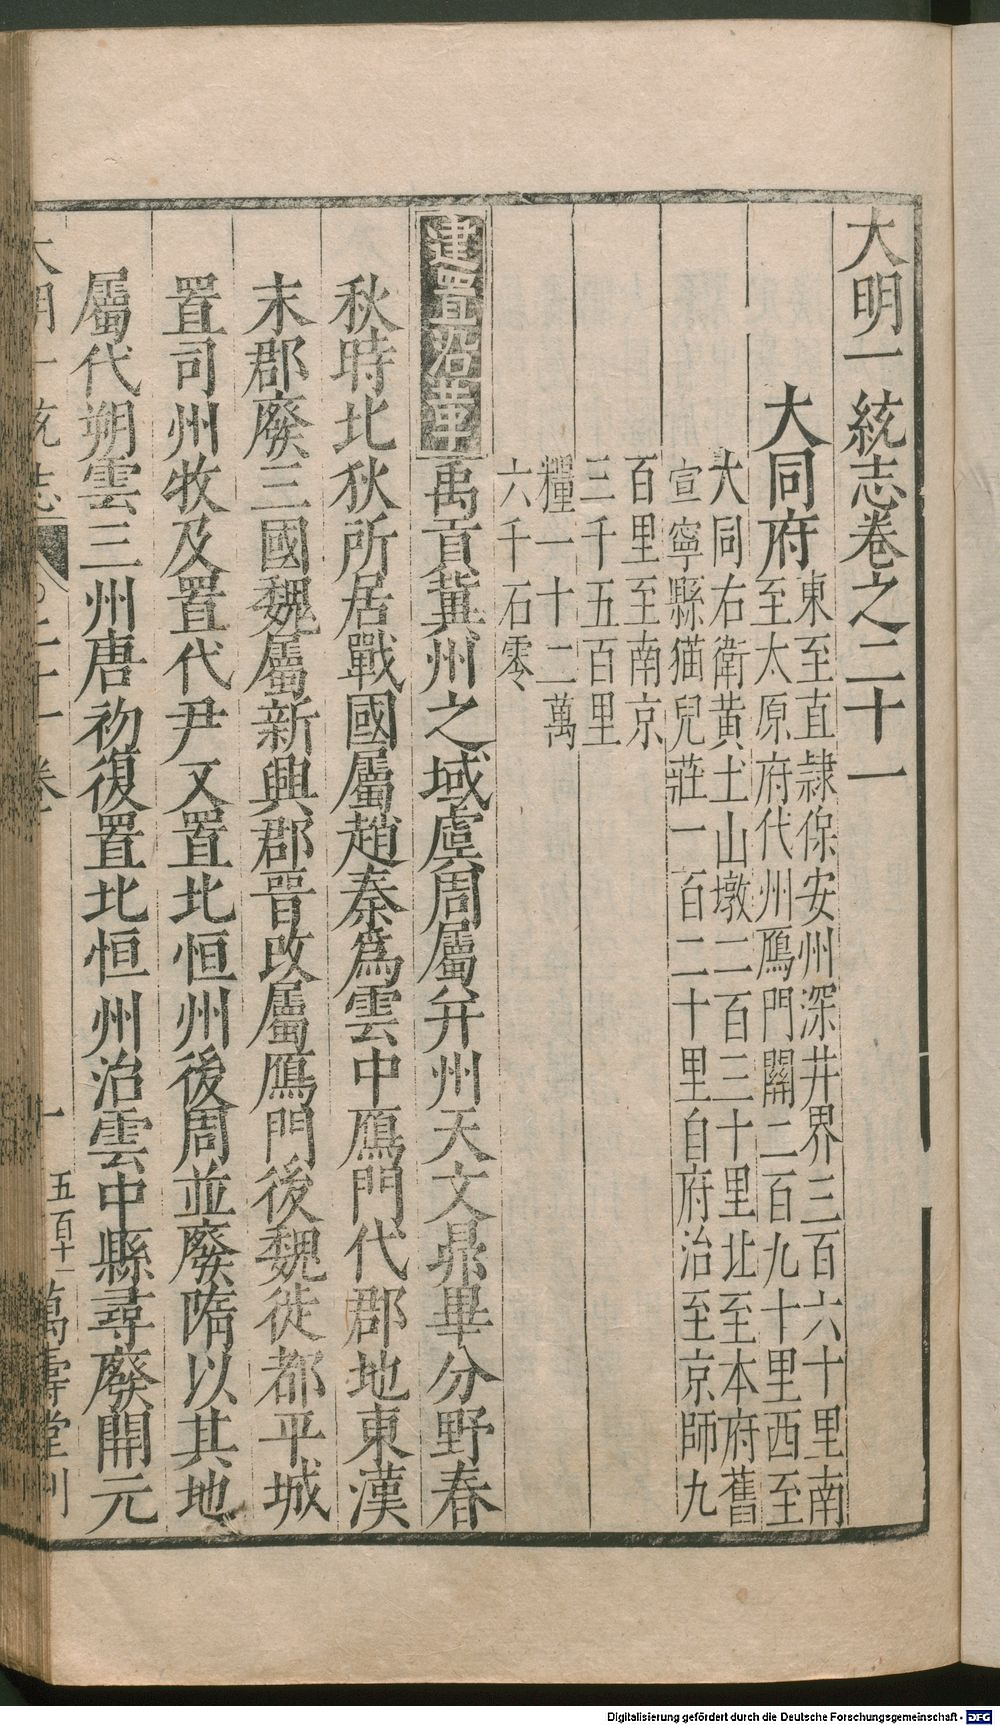 大明一統志卷之二十一
大同府
東至直隷保安州深井界三百六十里南
至太原府代州鴈門關二百九十里西至
大同右衛黃土山墩二百三十里北至本府舊
宣寧縣猫兒莊一百二十里自府治至京師九
百里至南京
三千五百里
糧一十二萬
六千石零
建置沿革禹貢冀州之域虞周屬幷州天文昴畢分野春
秋時北狄所居戰國屬趙秦爲雲中鴈門代郡地東漢
末郡廢三國魏屬新興郡晉改屬鴈門後魏徙都平城
置司州牧及置代尹又置北恒州後周並廢隋以其地
屬代朔雲三州唐初復置北恒州治雲中縣尋廢開元
大明一統志 二十一卷 一 五百十一 萬壽堂刊
Digitalisierung gefördert durch die Deutsche Forschungsgemeinschaft - DFG